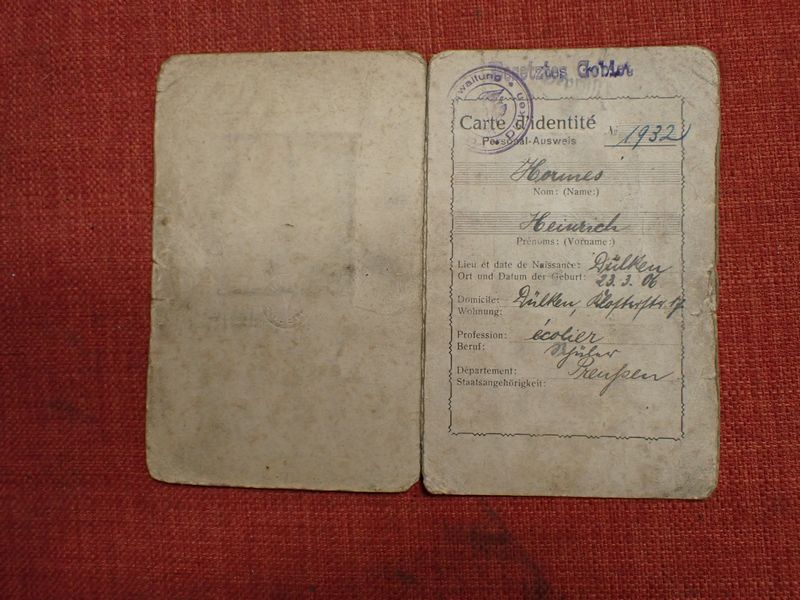 Besetztes Gebiet
Carte d'identité
Personal-Ausweis
№ 1932
Hormes
Nom: (Name:)
Heinrich
Prénoms: (Vorname:)
Lieu et date de Naissance: Dülken
Ort und Datum der Geburt: 23. 3. 06
Domicile: Dülken, Klosterstr. 17
Wohnung:
Profession: écolier
Beruf: Schüler
Département: Preußen
Staatsangehörigkeit: